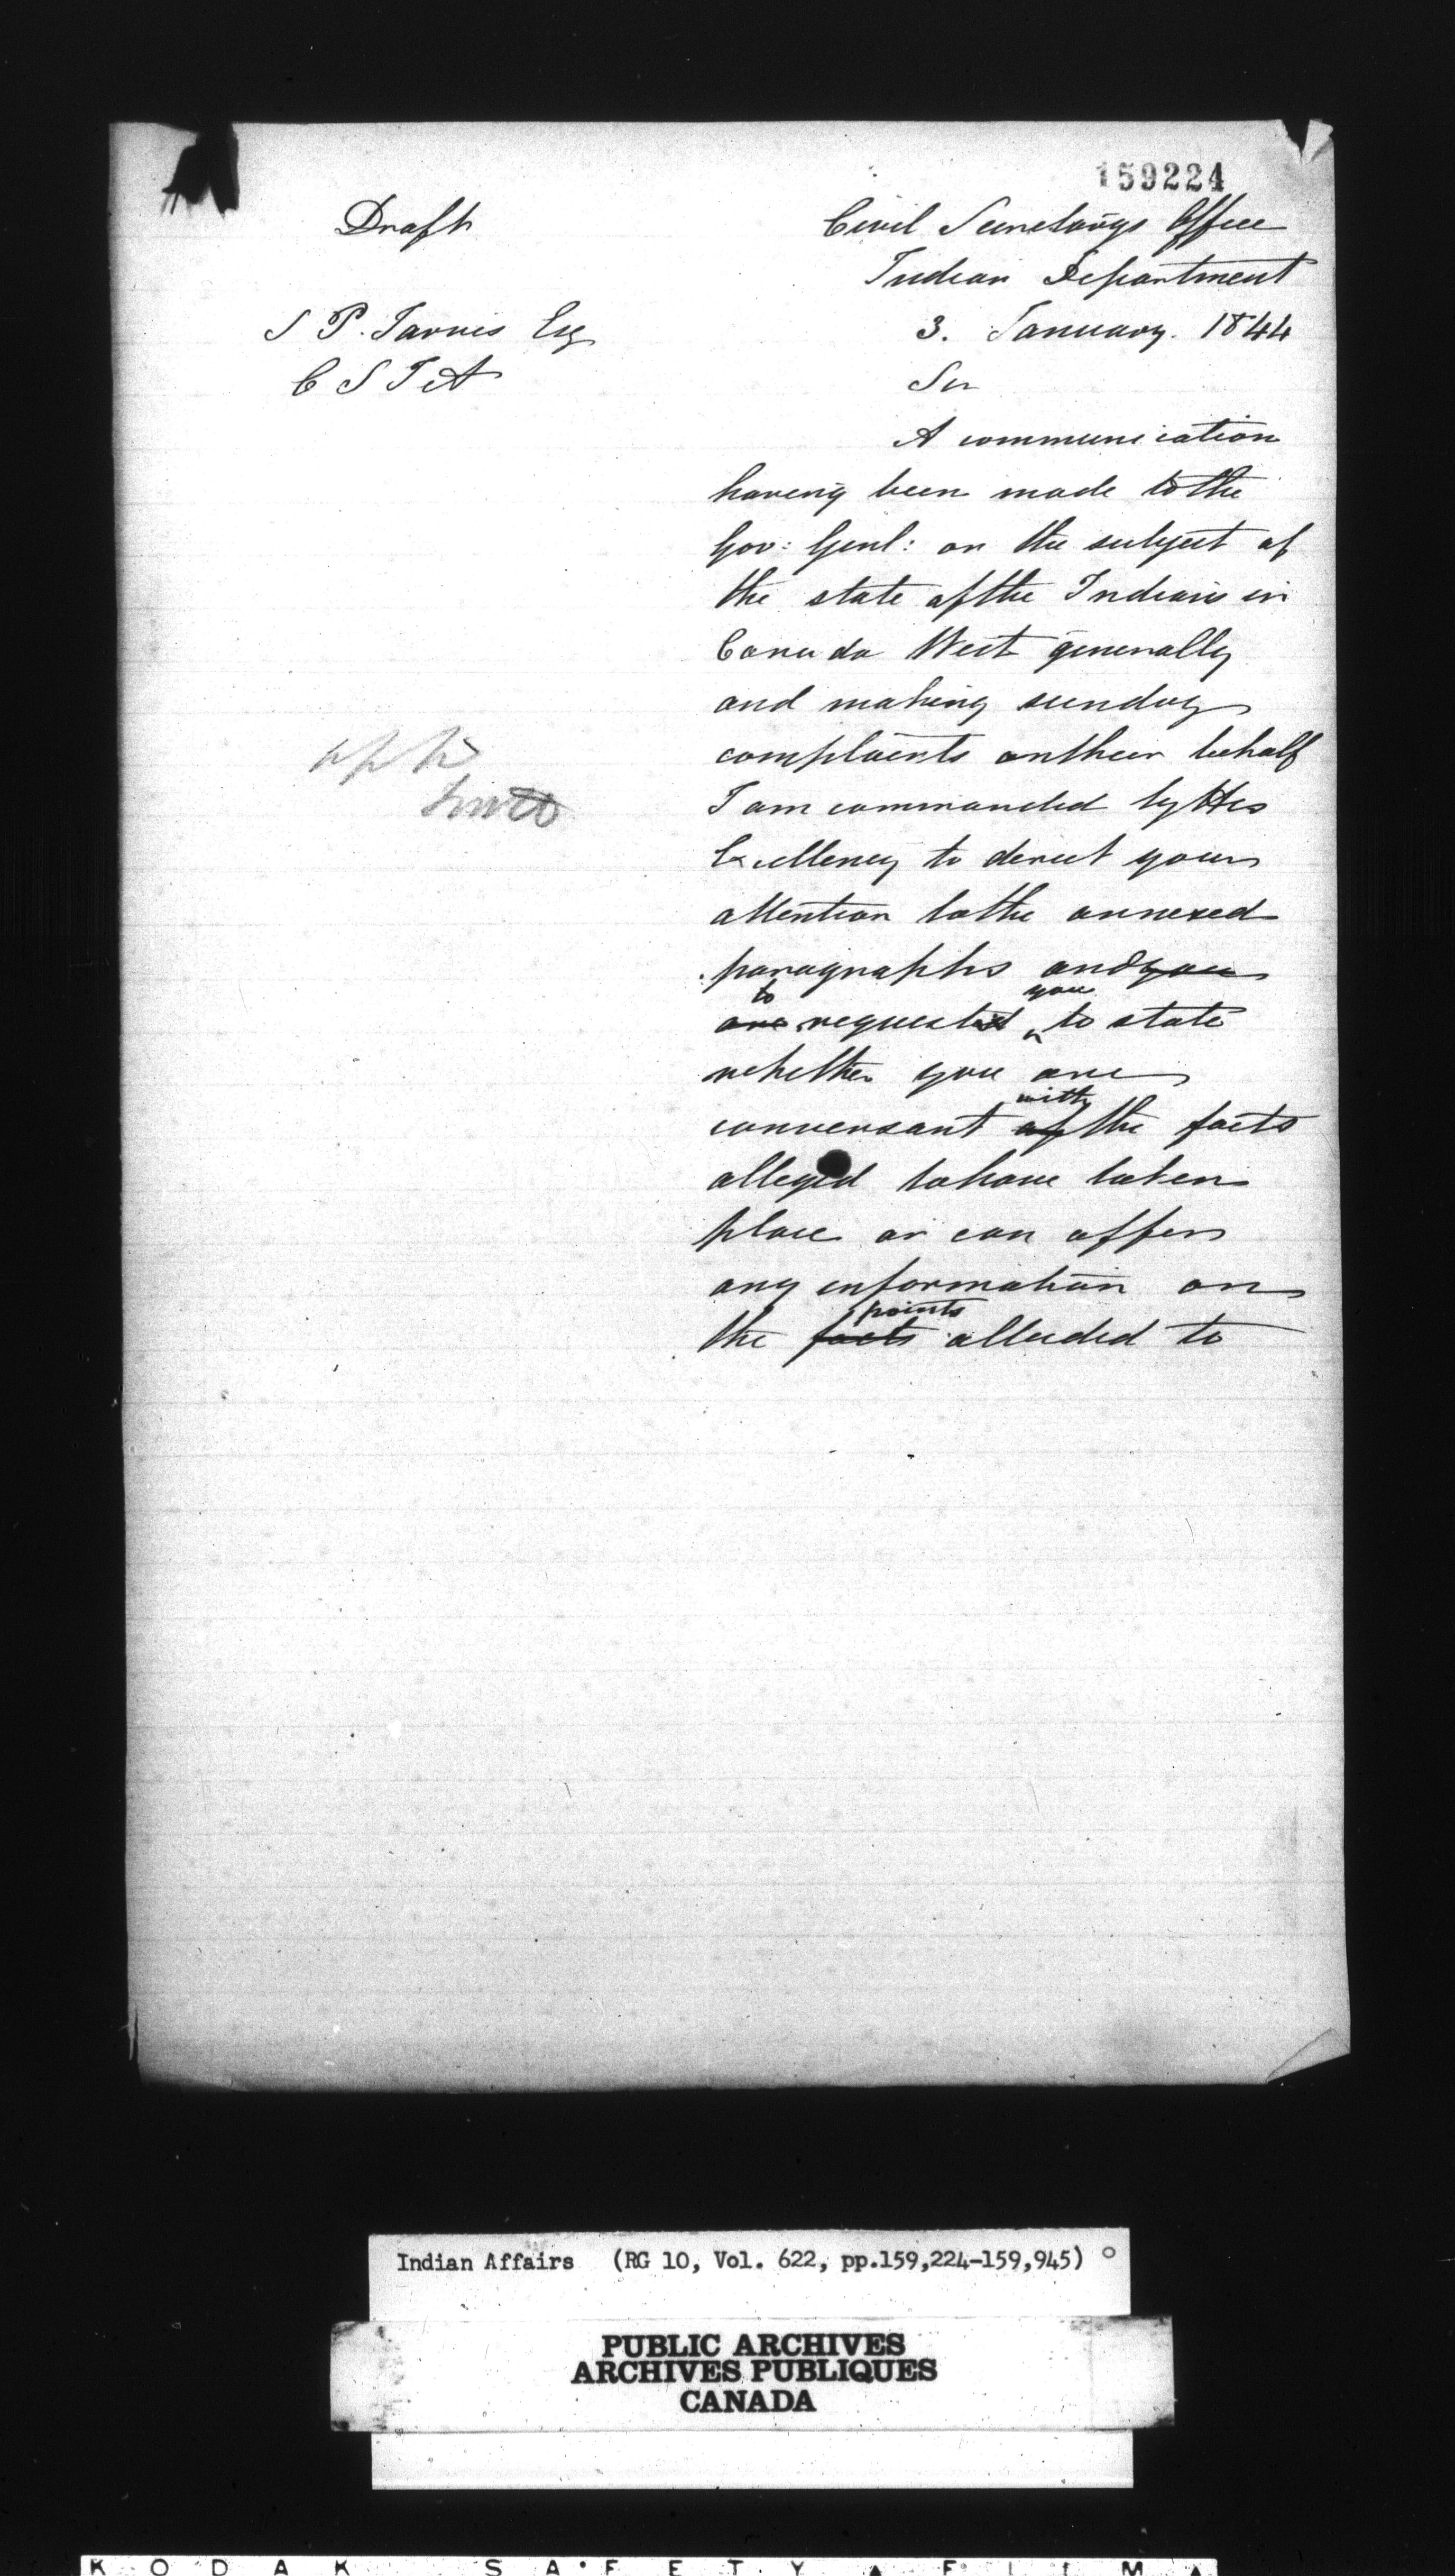 159224
Draft
Civil Secretarys Office
Indian Department
S P. Jarvis Esq
3. January. 1844
C S I A
Sir
A communication
having been made to the
Gov: Genl: on the subject of
the state of the Indians in
Canada West generally
and making sundry
complaints on their behalf
I am commanded by His
Excellency to direct your
attention to the annexed
paragraphs and you
to you
are requested to state
whether you are
with
conversant of the facts
alleged to have taken
place or can offer
any information on
points
the facts alluded to
Indian Affairs (RG 10, Vol. 622, pp.159,224-159,945)
PUBLIC ARCHIVES
ARCHIVES PUBLIQUES
CANADA
KODAK SAFETY FILM